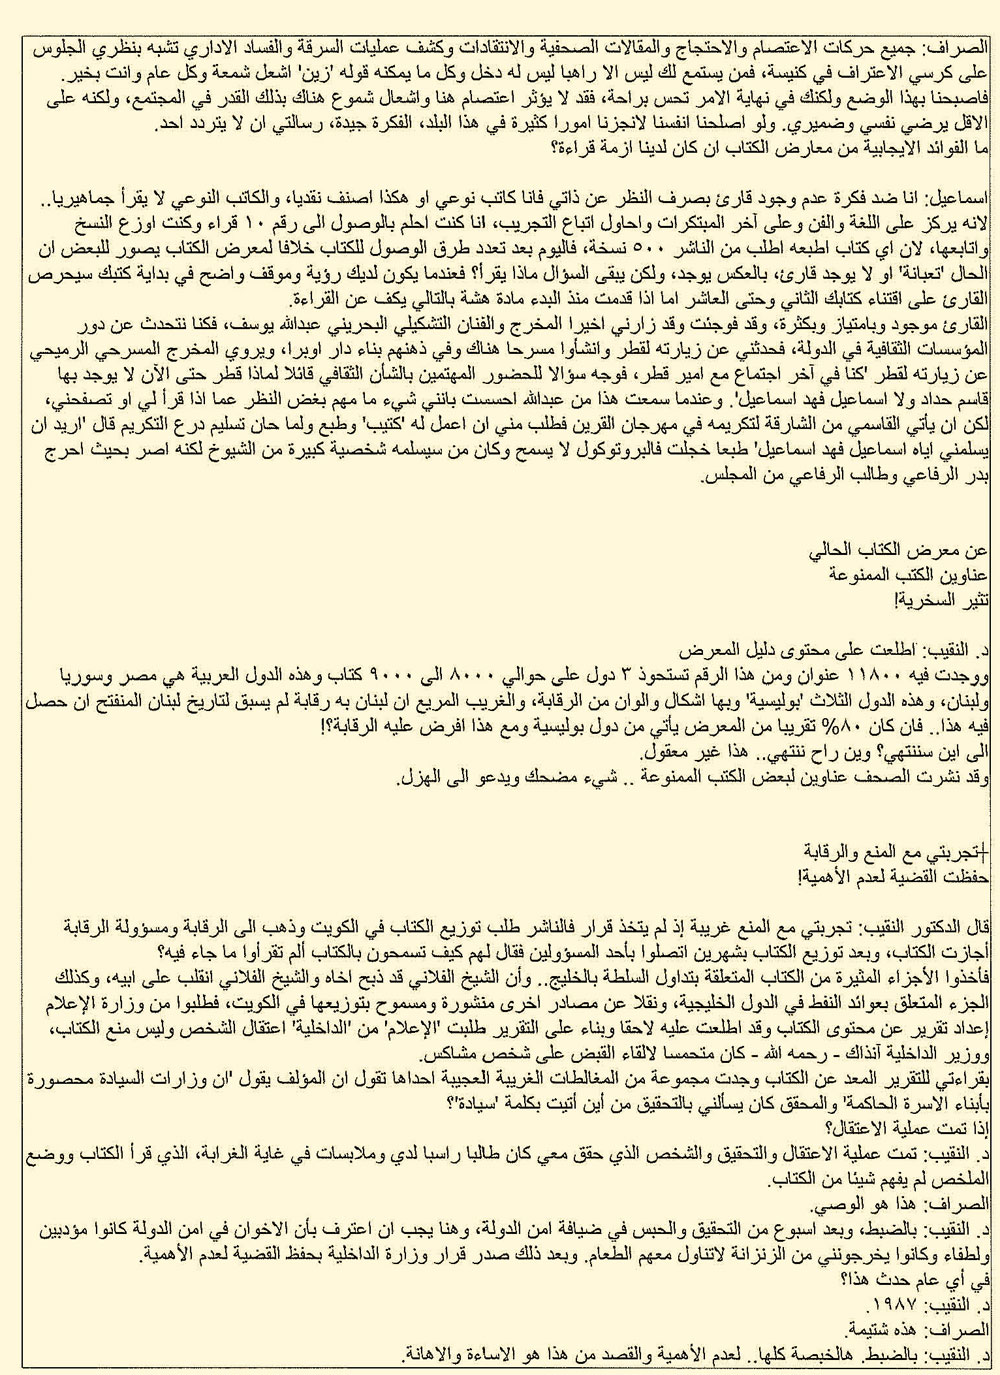 الصراف: جميع حركات الاعتصام والاحتجاج والمقالات الصحفية والانتقادات وكشف عمليات السرقة والفساد الاداري تشبه بنظري الجلوس
على كرسي الاعتراف في كنيسة، فمن يستمع لك ليس الا راهبا ليس له دخل وكل ما يمكنه قوله 'زين' اشعل شمعة وكل عام وانت بخير.
فاصبحنا بهذا الوضع ولكنك في نهاية الامر تحس براحة، فقد لا يؤثر اعتصام هنا واشعال شموع هناك بذلك القدر في المجتمع، ولكنه على
الاقل يرضي نفسي وضميري. ولو اصلحنا انفسنا لانجزنا امورا كثيرة في هذا البلد، الفكرة جيدة، رسالتي ان لا يتردد احد.
ما الفوائد الايجابية من معارض الكتاب ان كان لدينا ازمة قراءة؟
اسماعيل: انا ضد فكرة عدم وجود قارئ بصرف النظر عن ذاتي فانا كاتب نوعي او هكذا اصنف نقديا، والكاتب النوعي لا يقرأ جماهيريا..
لانه يركز على اللغة والفن وعلى آخر المبتكرات واحاول اتباع التجريب، انا كنت احلم بالوصول الى رقم ١٠ قراء وكنت اوزع النسخ
واتابعها، لان اي كتاب اطبعه اطلب من الناشر ٥٠٠ نسخة، فاليوم بعد تعدد طرق الوصول للكتاب خلافا لمعرض الكتاب يصور للبعض ان
الحال 'تعبانة' او لا يوجد قارئ، بالعكس يوجد، ولكن يبقى السؤال ماذا يقرأ؟ فعندما يكون لديك رؤية وموقف واضح في بداية كتبك سيحرص
القارئ على اقتناء كتابك الثاني وحتى العاشر اما اذا قدمت منذ البدء مادة هشة بالتالي يكف عن القراءة.
القارئ موجود وبامتياز وبكثرة، وقد فوجئت وقد زارني اخيرا المخرج والفنان التشكيلي البحريني عبدالله يوسف، فكنا نتحدث عن دور
المؤسسات الثقافية في الدولة، فحدثني عن زيارته لقطر وانشأوا مسرحا هناك وفي ذهنهم بناء دار اوبرا، ويروي المخرج المسرحي الرميحي
عن زيارته لقطر 'كنا في آخر اجتماع مع امير قطر، فوجه سؤالا للحضور المهتمين بالشأن الثقافي قائلا لماذا قطر حتى الآن لا يوجد بها
قاسم حداد ولا اسماعيل فهد اسماعيل'. وعندما سمعت هذا من عبدالله احسست بانني شيء ما مهم بغض النظر عما اذا قرأ لي او تصفحني،
لكن ان يأتي القاسمي من الشارقة لتكريمه في مهرجان القرين فطلب مني ان اعمل له 'كتيب' وطبع ولما حان تسليم درع التكريم قال 'اريد ان
يسلمني اياه اسماعيل فهد اسماعيل' طبعا خجلت فالبروتوكول لا يسمح وكان من سيسلمه شخصية كبيرة من الشيوخ لكنه اصر بحيث احرج
بدر الرفاعي وطالب الرفاعي من المجلس.
عن معرض الكتاب الحالي
عناوين الكتب الممنوعة
تثير السخرية!
د. النقيب: اطلعت على محتوى دليل المعرض
ووجدت فيه ١١٨٠٠ عنوان ومن هذا الرقم تستحوذ ٣ دول على حوالي ٨٠٠٠ الى ٩٠٠٠ كتاب وهذه الدول العربية هي مصر وسوريا
ولبنان، وهذه الدول الثلاث 'بوليسية' وبها اشكال والوان من الرقابة، والغريب المريع ان لبنان به رقابة لم يسبق لتاريخ لبنان المنفتح ان حصل
فيه هذا.. فان كان ٨٠% تقريبا من المعرض يأتي من دول بوليسية ومع هذا افرض عليه الرقابة؟!
الى اين سننتهي؟ وين راح ننتهي.. هذا غير معقول.
وقد نشرت الصحف عناوين لبعض الكتب الممنوعة .. شيء مضحك ويدعو الى الهزل.
┼تجربتي مع المنع والرقابة
حفظت القضية لعدم الأهمية!
قال الدكتور النقيب: تجربتي مع المنع غريبة إذ لم يتخذ قرار فالناشر طلب توزيع الكتاب في الكويت وذهب الى الرقابة ومسؤولة الرقابة
أجازت الكتاب، وبعد توزيع الكتاب بشهرين اتصلوا بأحد المسؤولين فقال لهم كيف تسمحون بالكتاب ألم تقرأوا ما جاء فيه؟
فأخذوا الأجزاء المثيرة من الكتاب المتعلقة بتداول السلطة بالخليج.. وأن الشيخ الفلاني قد ذبح اخاه والشيخ الفلاني انقلب على ابيه، وكذلك
الجزء المتعلق بعوائد النفط في الدول الخليجية، ونقلا عن مصادر اخرى منشورة ومسموح بتوزيعها في الكويت، فطلبوا من وزارة الإعلام
إعداد تقرير عن محتوى الكتاب وقد اطلعت عليه لاحقا وبناء على التقرير طلبت 'الإعلام' من 'الداخلية' اعتقال الشخص وليس منع الكتاب،
ووزير الداخلية آنذاك - رحمه الله - كان متحمسا لالقاء القبض على شخص مشاكس.
بقراءتي للتقرير المعد عن الكتاب وجدت مجموعة من المغالطات الغريبة العجيبة احداها تقول ان المؤلف يقول 'ان وزارات السيادة محصورة
بأبناء الاسرة الحاكمة' والمحقق كان يسألني بالتحقيق من أين أتيت بكلمة 'سيادة'؟
إذا تمت عملية الاعتقال؟
د. النقيب: تمت عملية الاعتقال والتحقيق والشخص الذي حقق معي كان طالبا راسبا لدي وملابسات في غاية الغرابة، الذي قرأ الكتاب ووضع
الملخص لم يفهم شيئا من الكتاب.
الصراف: هذا هو الوصي.
د. النقيب: بالضبط، وبعد اسبوع من التحقيق والحبس في ضيافة امن الدولة، وهنا يجب ان اعترف بأن الاخوان في امن الدولة كانوا مؤدبين
ولطفاء وكانوا يخرجونني من الزنزانة لاتناول معهم الطعام. وبعد ذلك صدر قرار وزارة الداخلية بحفظ القضية لعدم الأهمية.
في أي عام حدث هذا؟
د. النقيب: ١٩٨٧.
الصراف: هذه شتيمة.
د. النقيب: بالضبط. هالخبصة كلها.. لعدم الأهمية والقصد من هذا هو الاساءة والاهانة.